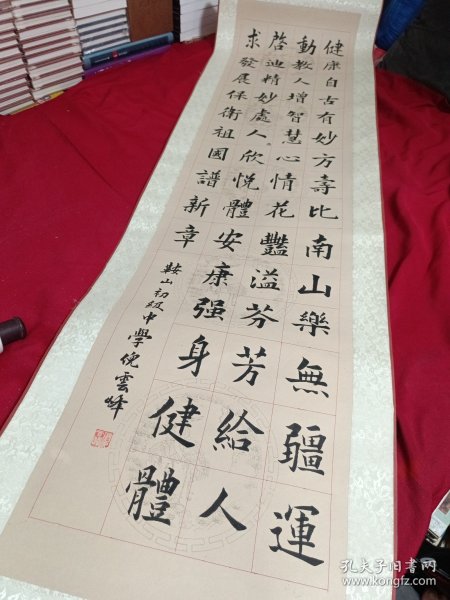 健康自古有妙方壽比南山樂無疆運
動教人增智慧心情花豔溢芬芳給人
啓迪精妙處人。欣悅體安康强身健體
求發展保衛祖國譜新章
鞍山初級中學倪雲峰
孔夫子旧书网
www.kongfz.com